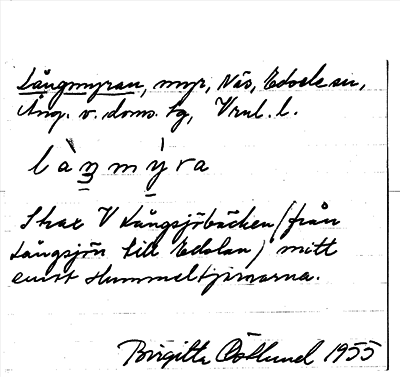 Långmyran, myr, Näs, Edsele sn,
Ång. v. doms. tg, Vnl. l.
làŋmýra
Strax V Långsjöbäcken (från
Långsjön till Edslan) mitt
emot Hummeltjärnarna.
Birgitta Östlund 1955